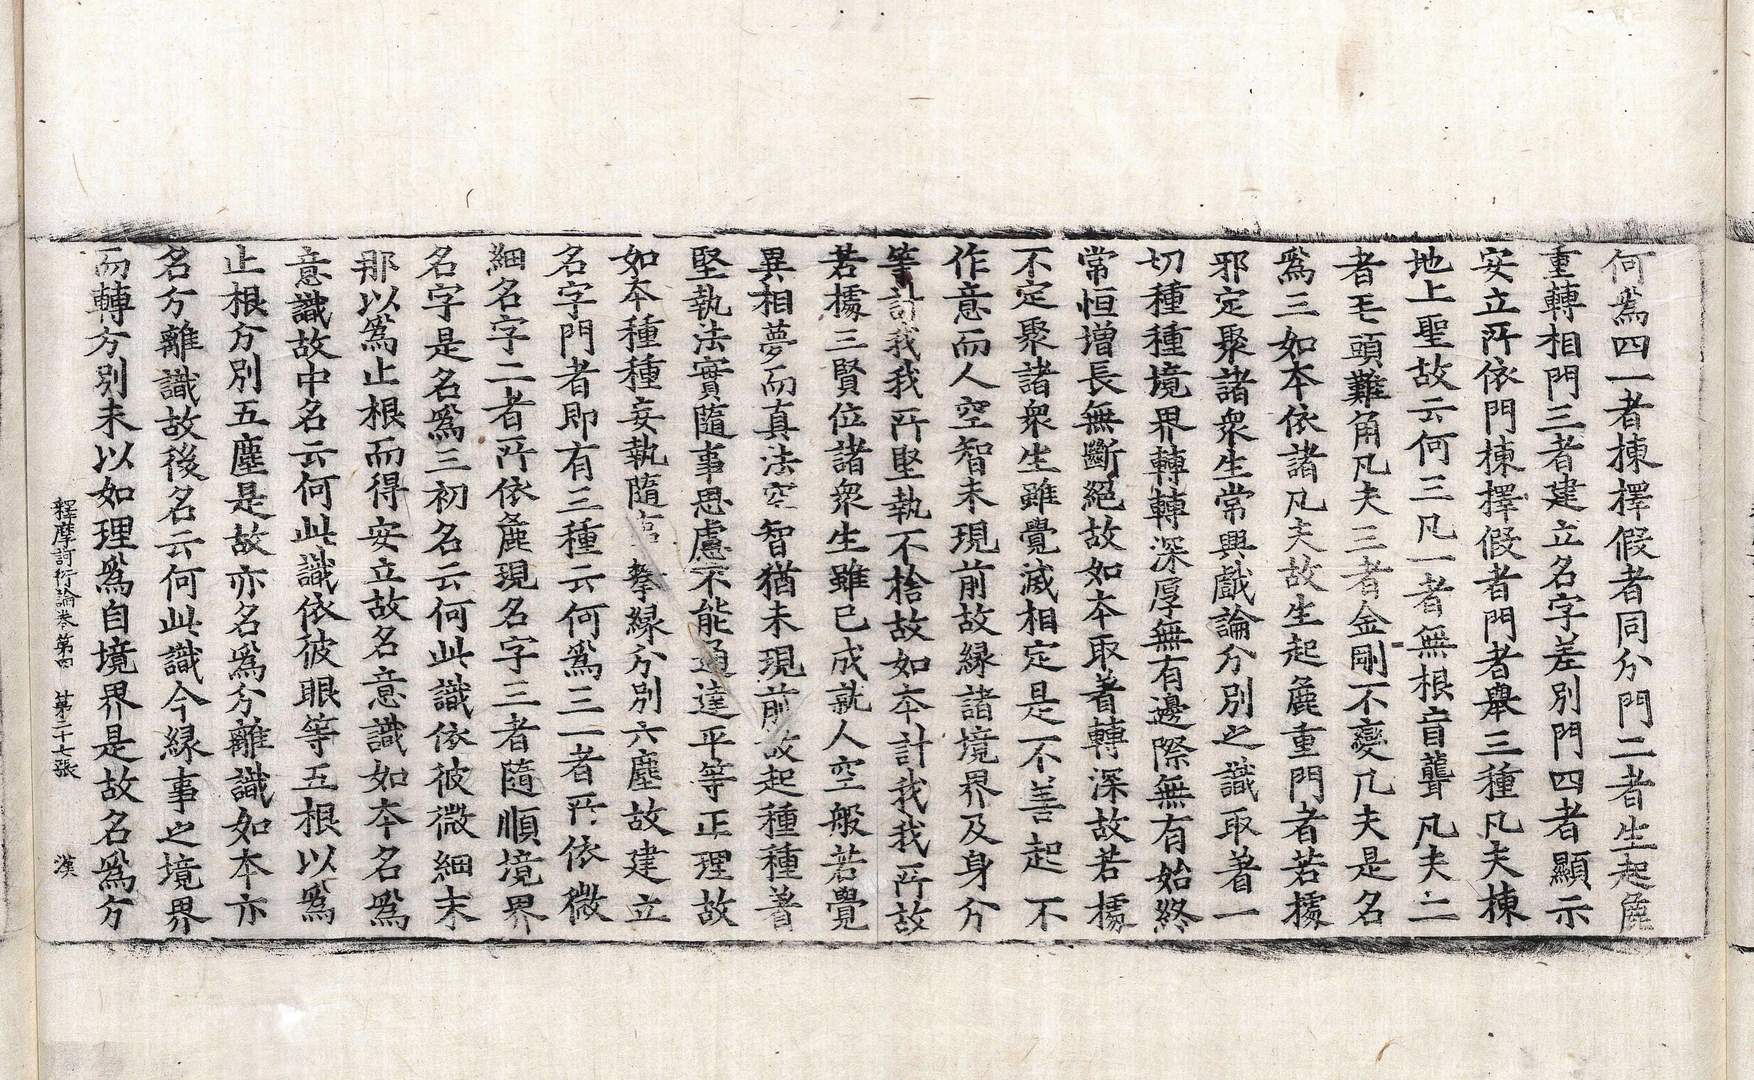 何爲四一者揀擇假者同分門二者生起麁
重轉相門三者建立名字差別門四者顯示
安立所依門揀擇假者門者舉三種凡夫揀
地上聖故云何三凡一者無根盲聾凡夫二
者毛頭難角凡夫三者金剛不變凡夫是名
爲三如本依諸凡夫故生起麁重門者若據
邪定聚諸衆生常興戲論分別之識取著一
切種種境界轉轉深厚無有邊際無有始終
常恒增長無斷絕故如本取著轉深故若據
不定聚諸衆生雖覺滅相定是一不善起不
作意而人空智未現前故緣諸境界及身分
等計我我所堅執不捨故如本計我我所故
若據三賢位諸衆生雖已成就人空般若覺
異相夢而真法空智猶未現前故起種種著
堅執法實隨事思慮不能通達平等正理故
如本種種妄執隨事攀緣分別六塵故建立
名字門者即有三種云何爲三一者所依微
細名字二者所依麁現名字三者隨順境界
名字是名爲三初名云何此識依彼微細末
那以爲止根而得安立故名意識如本名爲
意識故中名云何此識依彼眼等五根以爲
止根分別五塵是故亦名爲分離識如本亦
名分離識故後名云何此識今緣事之境界
而轉分別未以如理爲自境界是故名爲分
釋摩訶衍論卷第四 第二十七張 漢